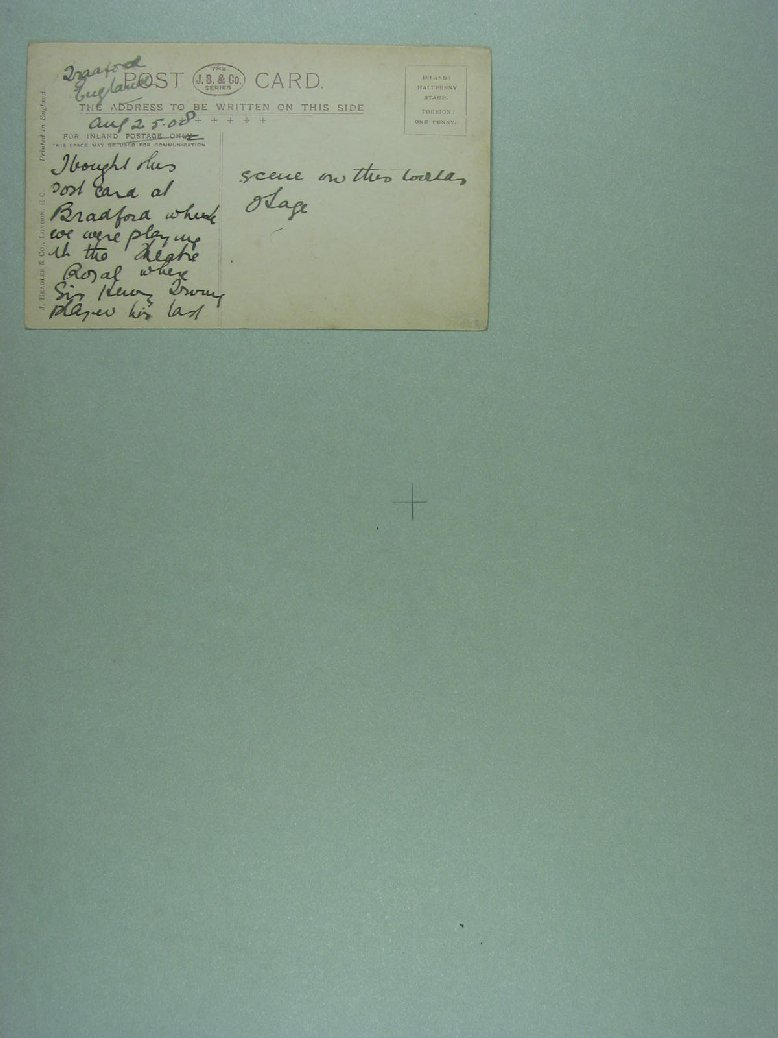 Bradford
England
POST CARD.
THE
J. B. & Co.
SERIES
THE ADDRESS TO BE WRITTEN ON THIS SIDE
Aug 25-08
+ + + + +
FOR INLAND POSTAGE ONLY
THIS SPACE MAY BE USED FOR COMMUNICATION
INLAND
HALFPENNY
STAMP.
FOREIGN
ONE PENNY.
Printed in England.
I bought this
post card at
Bradford where
we were playing
at the Theatre
Royal where
Sir Henry Irving
played his last
scene on this worlds
stage